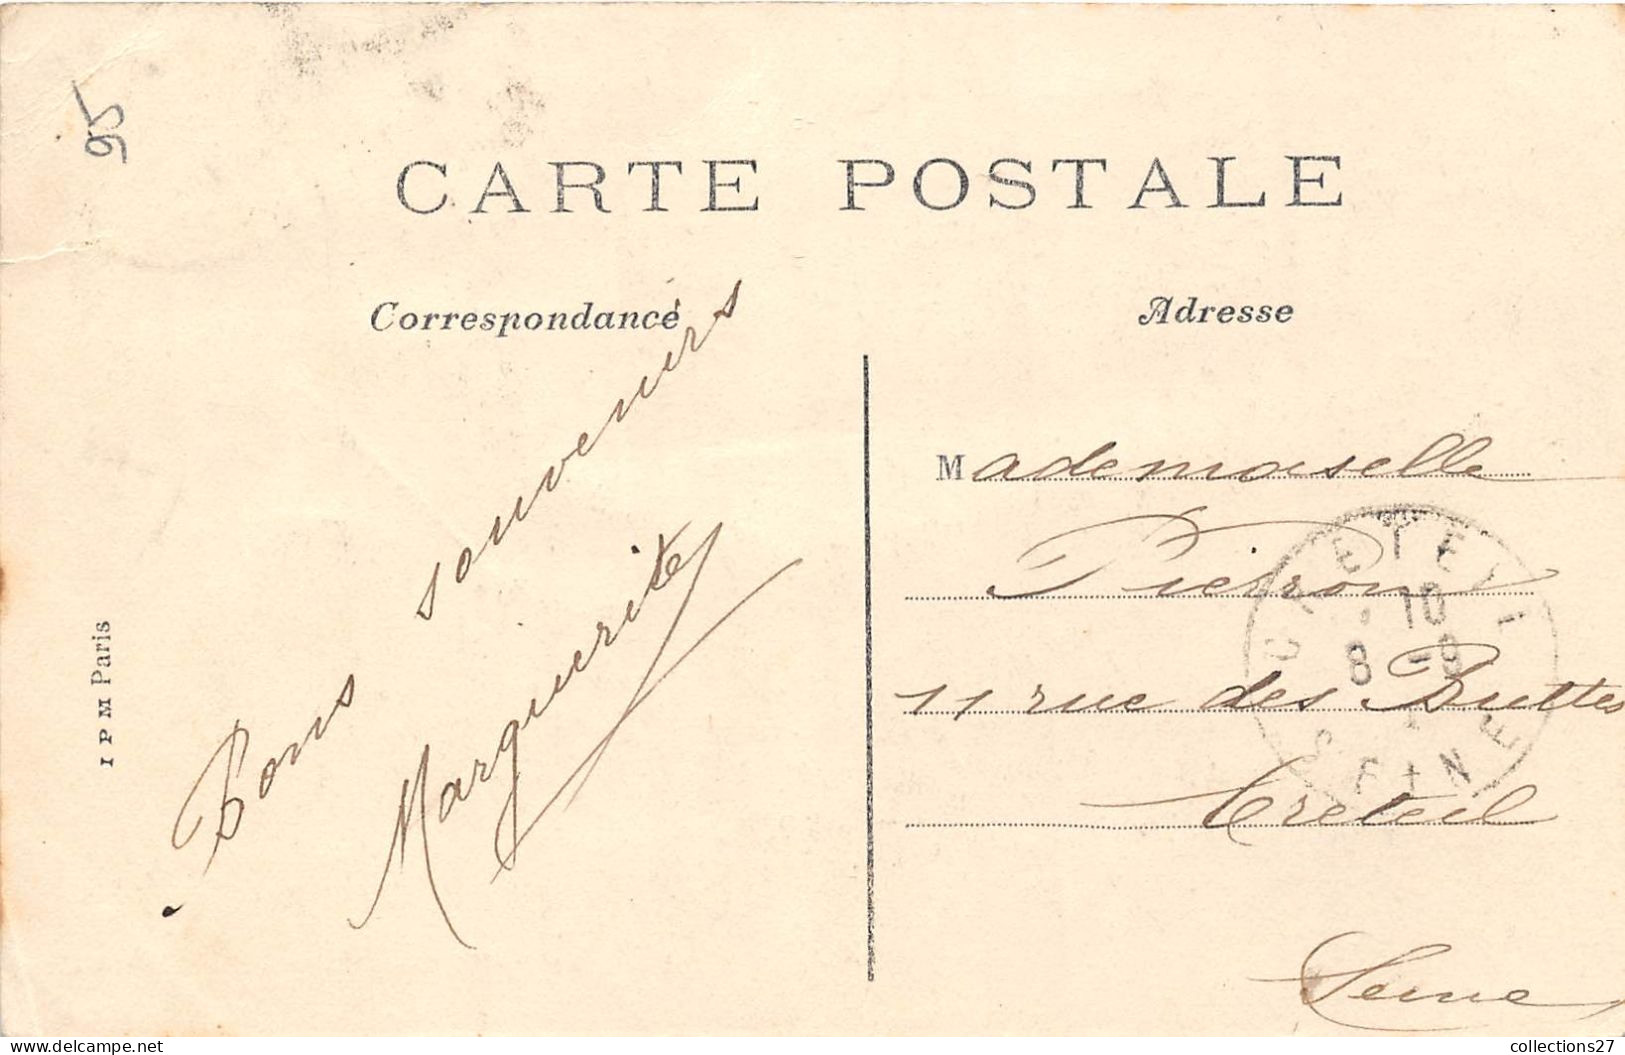 95
CARTE POSTALE
Correspondance
Adresse
Bons souvenirs
Marguerite
I P M Paris
Mademoiselle
11 rue des Buttes
Creteil
Seine
CRETEIL
10
8 -9
SEINE
collections27